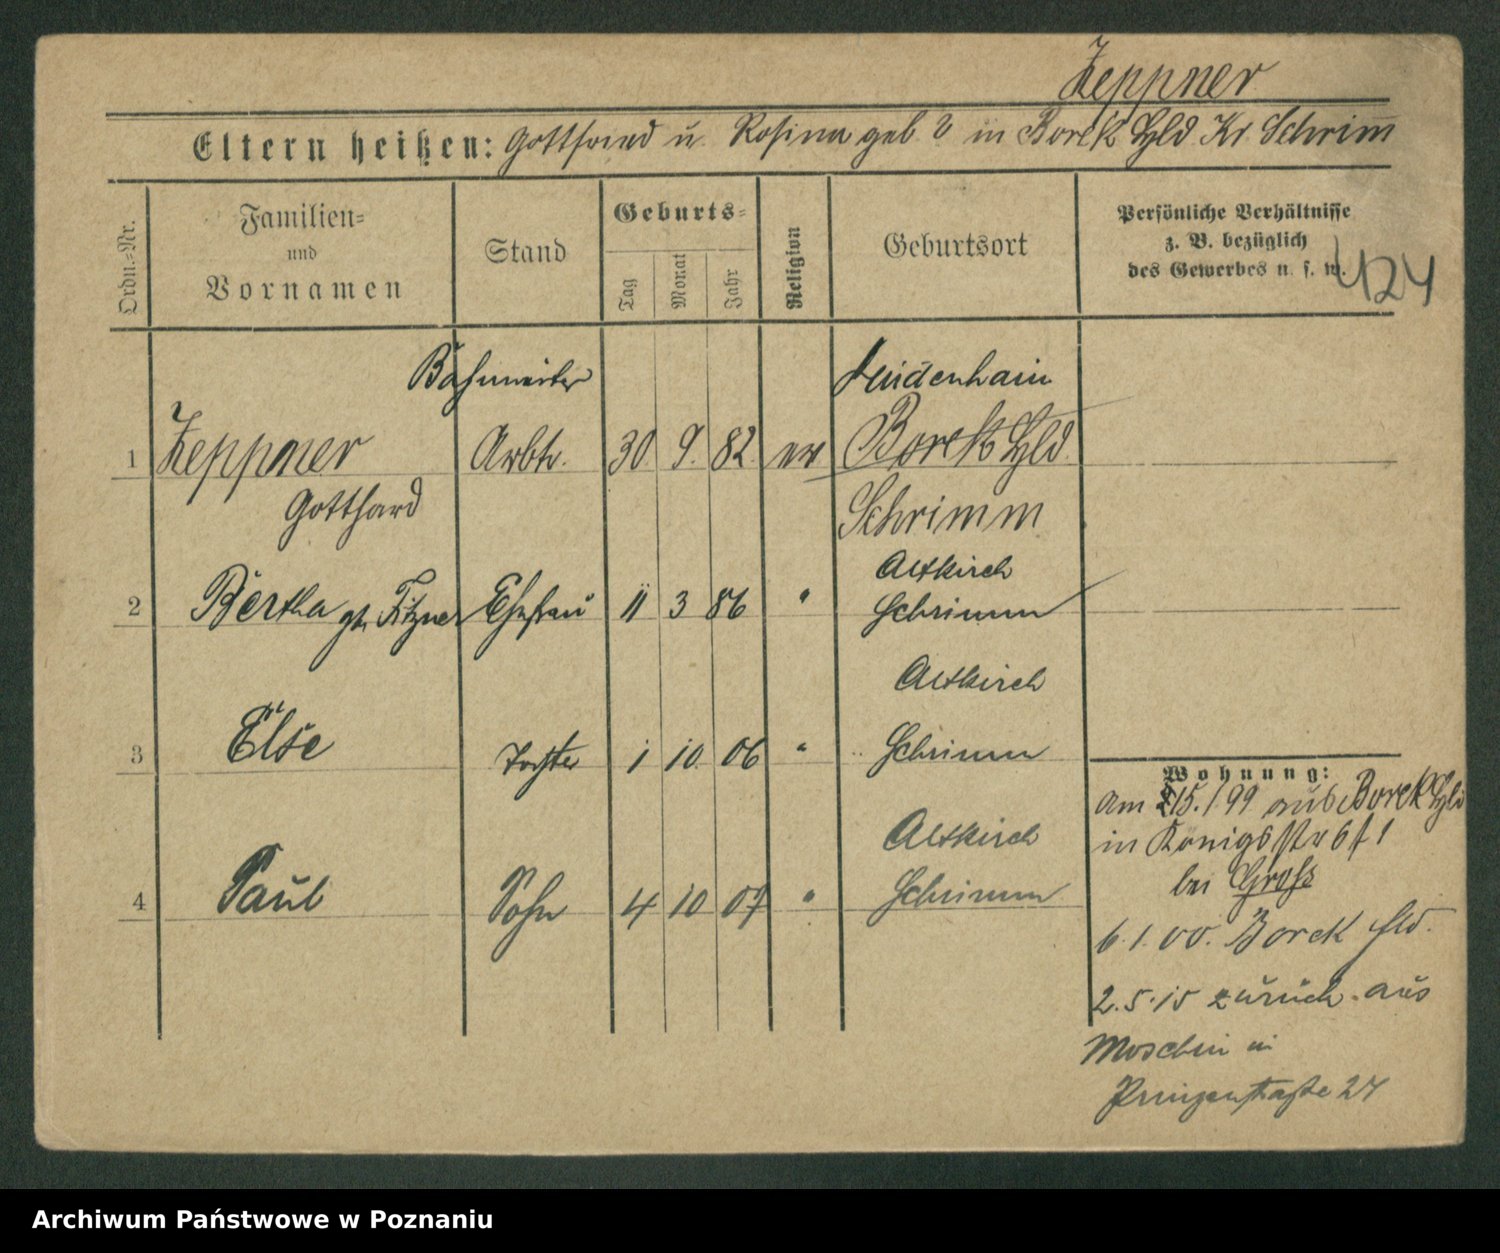 Zeppner
Eltern heißen: Gotthard u. Rosina geb. ? in Borek Hld Kr. Schrim
Ordn.-Nr.
Familien-
und
Vornamen
Stand
Geburts-
Tag
Monat
Jahr
Religion
Geburtsort
Persönliche Verhältnisse
z. B. bezüglich
des Gewerbes u. s. w.
424
1 Zeppner Arbtr. 30 9. 82 ev Borek Hld.
Gotthard Schrimm
Altkirch
2 Bertha gb. Fitzner Ehefrau 11 3 86 " Schrimm
Altkirch
3 Else Tochter 1 10 06 " Schrimm
Altkirch
4 Paul Sohn 4 10 07 " Schrimm
Wohnung:
am 15./99 aus Borek Hld
in Königsstr 6 f 1
bei Gross
6.1.00. Borek Hld.
2.5.15 zurück aus
Moschin in
Prinzenstraße 27